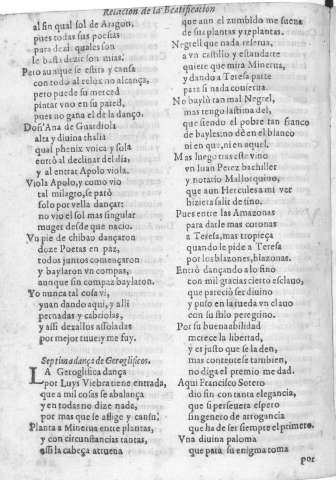 Relacion de la Beatificacion
al fin qual sol de Aragon,
pues todas sus poesias
para dezir quales son
le basta dezir son mias.
Pero aunque se estira y cansa
con todo al relox no alcança,
pero puede su merced
pintar vno en su pared,
pues no gana el de la dança.
Dos'Ana de Guardiola
alta y diuina thalia
qual phenix voica y sola
entrò al declinar del dia,
y al entrar Apolo viola.
Viola Apolo, y como vio
tal milagro, se parò
solo por vella dançar:
no vio el sol mas singular
muger desde que nacio.
Vn pie de chibao dançaron
doze Poetas en paz,
todos juntos començaron
y baylaron vn compas,
aunque sin compaz baylaron.
Yo nunca tal cosa vi,
yuan dando aqui, y alli
pernadas y cabriolas,
y assi dexallos assoladas
por mejor tuue, y me fuy.
Septima dança de Geroglificos.
LA Geroglifica dança
por Luys Viebra tiene entrada,
que a mil cosas se abalança
y en todas no dize nada,
por mas que se assige y cansa.
Planta a Minerua entre plantas,
y con circunstancias tantas,
assi la cabeça atruena
que aun el zumbido me suena
de sus plantas y replantas.
Negrell que nada reserua,
a vn castillo y estandarte
quiere que mira Minerua,
y dando a Teresa parte
para si nada conserua.
No baylò tan mal Negrel,
mas tengo lastima del,
que siendo el pobre tan franco
de baylesino dè en el blanco
ni en que, ni en aquel.
Mas luego tras este vino
vn Iuan Perez bachiller
y notario Mallorquino,
que aun Hercules a mi ver
hiziera salir de tino.
Pues entre las Amazonas
para darle mas coronas
a Teresa, mas tropieça
quando le pide a Teresa
por los blazones, blazonas.
Entrò dançando a lo fino
con mil gracias cierto esclauo,
que pareciò ser diuino
y puso en la rueda vn clauo
con su stilo peregrino.
Por su buena abilidad
merece la libertad,
y es justo que se la den,
mas contentese tambien,
no diga el premio me dad.
Aqui Francisco Sotero
dio sin con tanta elegancia,
que si perseuera espero
sin genero de arrogancia
que ha de ser siempre el primero.
Vna diuina paloma
que para su enigma toma
por